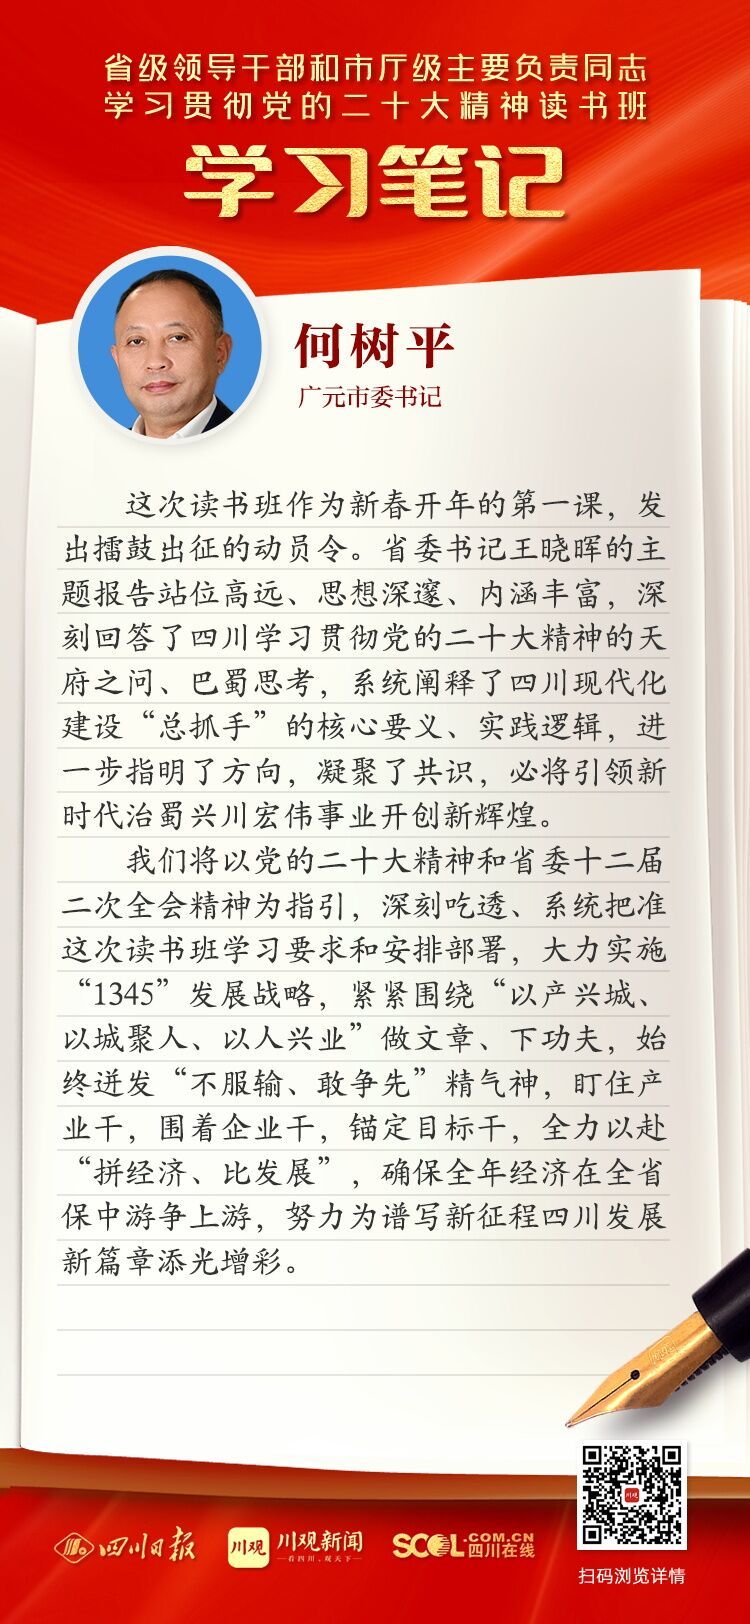 省级领导干部和市厅级主要负责同志
学习贯彻党的二十大精神读书班
学习笔记
何树平
广元市委书记
这次读书班作为新春开年的第一课，发
出擂鼓出征的动员令。省委书记王晓晖的主
题报告站位高远、思想深邃、内涵丰富，深
刻回答了四川学习贯彻党的二十大精神的天
府之问、巴蜀思考，系统阐释了四川现代化
建设“总抓手”的核心要义、实践逻辑，进
一步指明了方向，凝聚了共识，必将引领新
时代治蜀兴川宏伟事业开创新辉煌。
我们将以党的二十大精神和省委十二届
二次全会精神为指引，深刻吃透、系统把准
这次读书班学习要求和安排部署，大力实施
“1345”发展战略，紧紧围绕“以产兴城、
以城聚人、以人兴业”做文章、下功夫，始
终迸发“不服输、敢争先”精气神，盯住产
业干，围着企业干，锚定目标干，全力以赴
“拼经济、比发展”，确保全年经济在全省
保中游争上游，努力为谱写新征程四川发展
新篇章添光增彩。
四川日报
川观
川观新闻
看四川，观天下
SCOL.COM.CN
四川在线
川观
扫码浏览详情